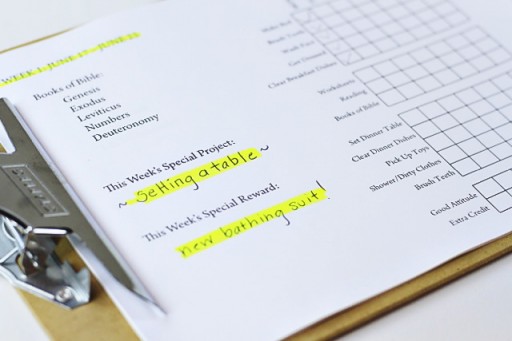 WEEK
Books of Bible:
Genesis
Exodus
Leviticus
Numbers
Deuteronomy
This Week's Special Project:
~ setting a table ~
This Week's Special Reward:
new bathing suit!
Make Bed
Brush Teeth
Wash Face
Get Dressed
Clear Breakfast Dishes
Worksheets
Reading
Books of Bible
Set Dinner Table
Clear Dinner Dishes
Pick Up Toys
Shower/Dirty Clothes
Brush Teeth
Good Attitude
Extra Credit